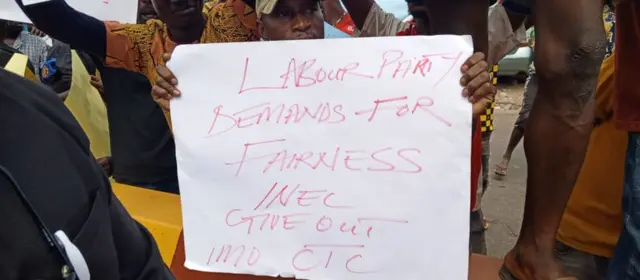 LABOUR PARTY
DEMANDS FOR
FAIRNESS
INEC
GIVE OUT
IMO CTC